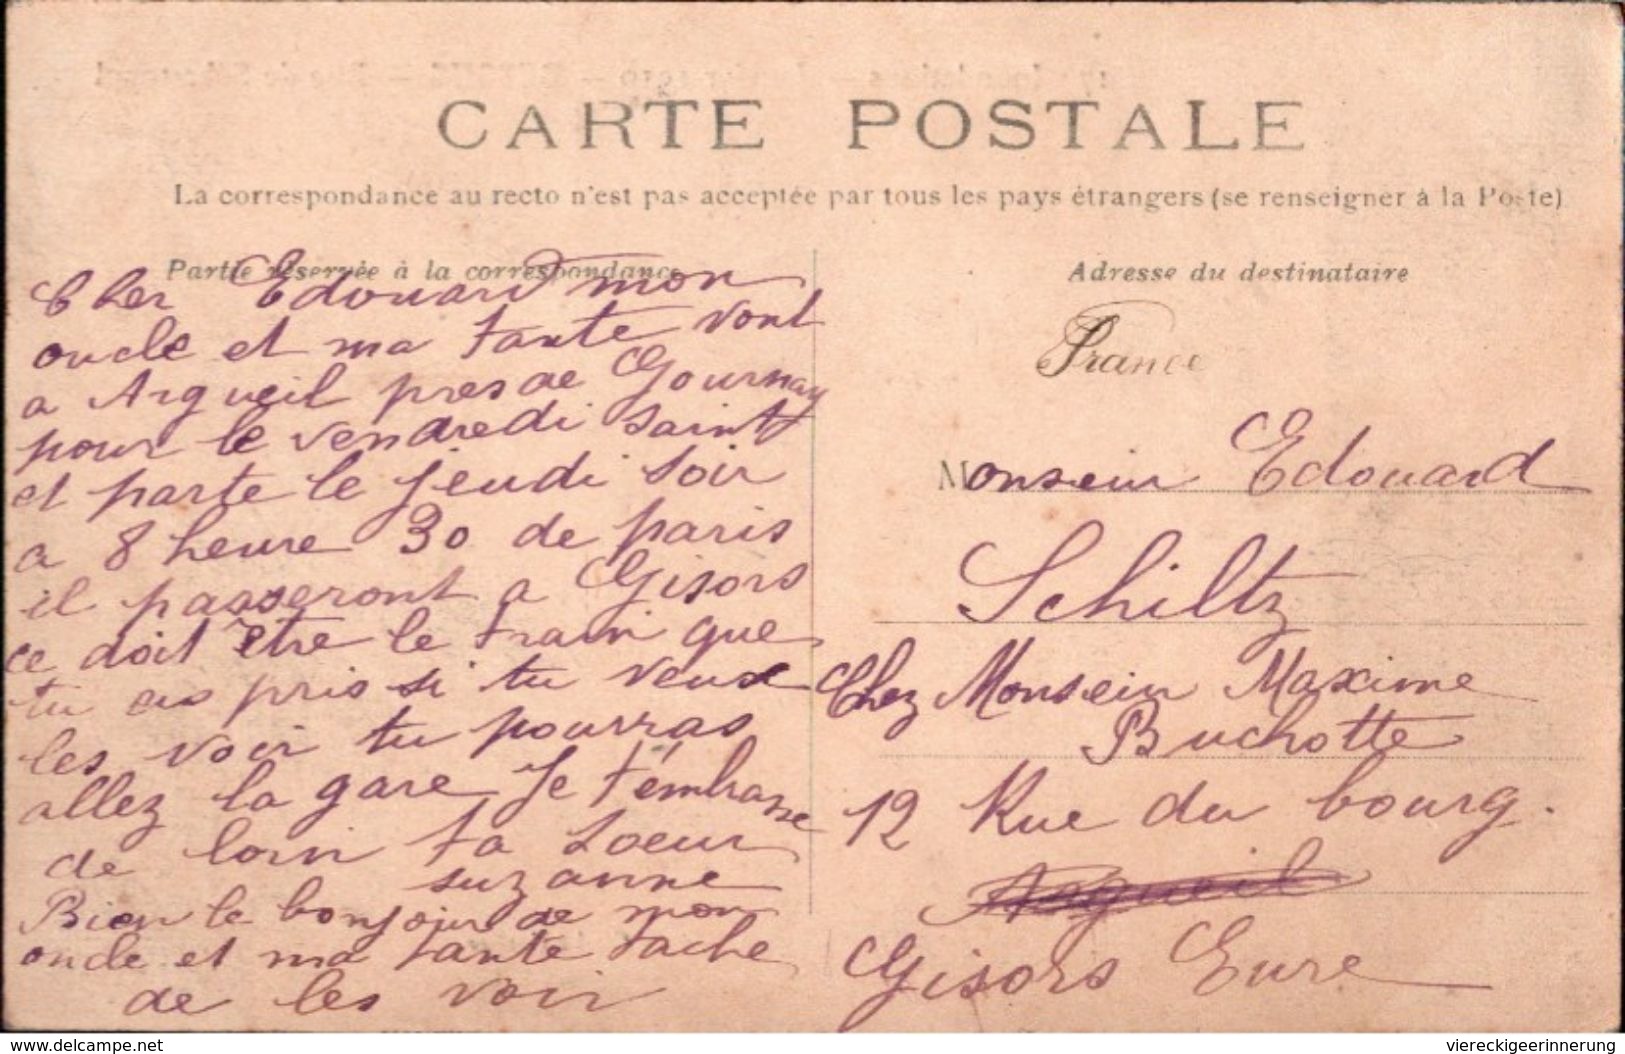 CARTE POSTALE
La correspondance au recto n'est pas acceptée par tous les pays étrangers (se renseigner à la Poste)
Partie réservée à la correspondance
Cher Edouard mon
oncle et ma tante vont
a Argueil pres de Gournay
pour le vendredi saint
et parte le jeudi soir
a 8 heure 30 de paris
il passeront a Gisors
ce doit être le train que
tu as pris si tu veux
les voir tu pourras
allez la gare Je t'embrasse
de loin ta soeur
suzanne
Bien le bonjour de mon
oncle et ma tante tache
de les voir
Adresse du destinataire
France
Monseiur Edouard
Schiltz
Chez Monseiur Maxime
Buchotte
12 Rue du bourg.
Argueil
Gisors Eure
delcampe.net
viereckigeerinnerung